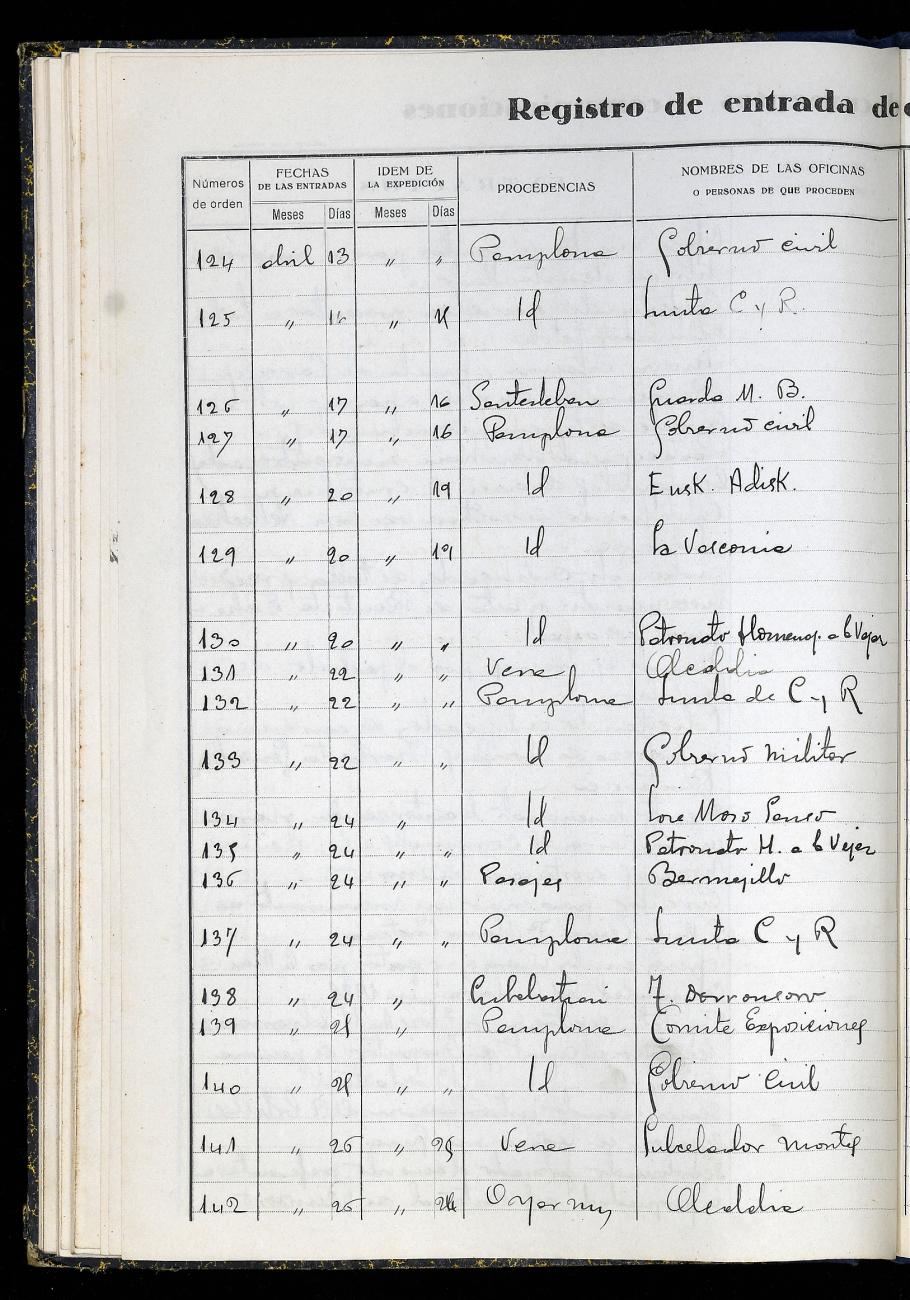 Registro de entrada de
Números de orden FECHAS DE LAS ENTRADAS IDEM DE LA EXPEDICIÓN PROCEDENCIAS NOMBRES DE LAS OFICINAS O PERSONAS DE QUE PROCEDEN
Meses Días Meses Días
124 abril 13 " " Pamplona Gobierno civil
125 " " Id Junta C y R.
126 " 17 " 16 Santesteban Guarda M. B.
127 " 17 " 16 Pamplona Gobierno civil
128 " 20 " 19 Id Eusk. Adisk.
129 " 20 " 19 Id La Vasconia
130 " 20 " " Id Patronato Homenaj. a la Vejez
131 " 22 " " Vera Alcaldia
132 " 22 " " Pamplona Junta de C y R
133 " 22 " " Id Gobierno militar
134 " 24 " Id
135 " 24 " " Id Patronato H. a la Vejez
136 " 24 " " Pasajes Bermejillo
137 " 24 " " Pamplona Junta C y R
138 " 24 " F. Dorronsoro
139 " 25 " Pamplona Comite Exposiciones
140 " 25 " " Id Gobierno Civil
141 " 26 " 25 Vera Subcelador Montes
142 " 26 " 24 Oyarzun Alcaldia